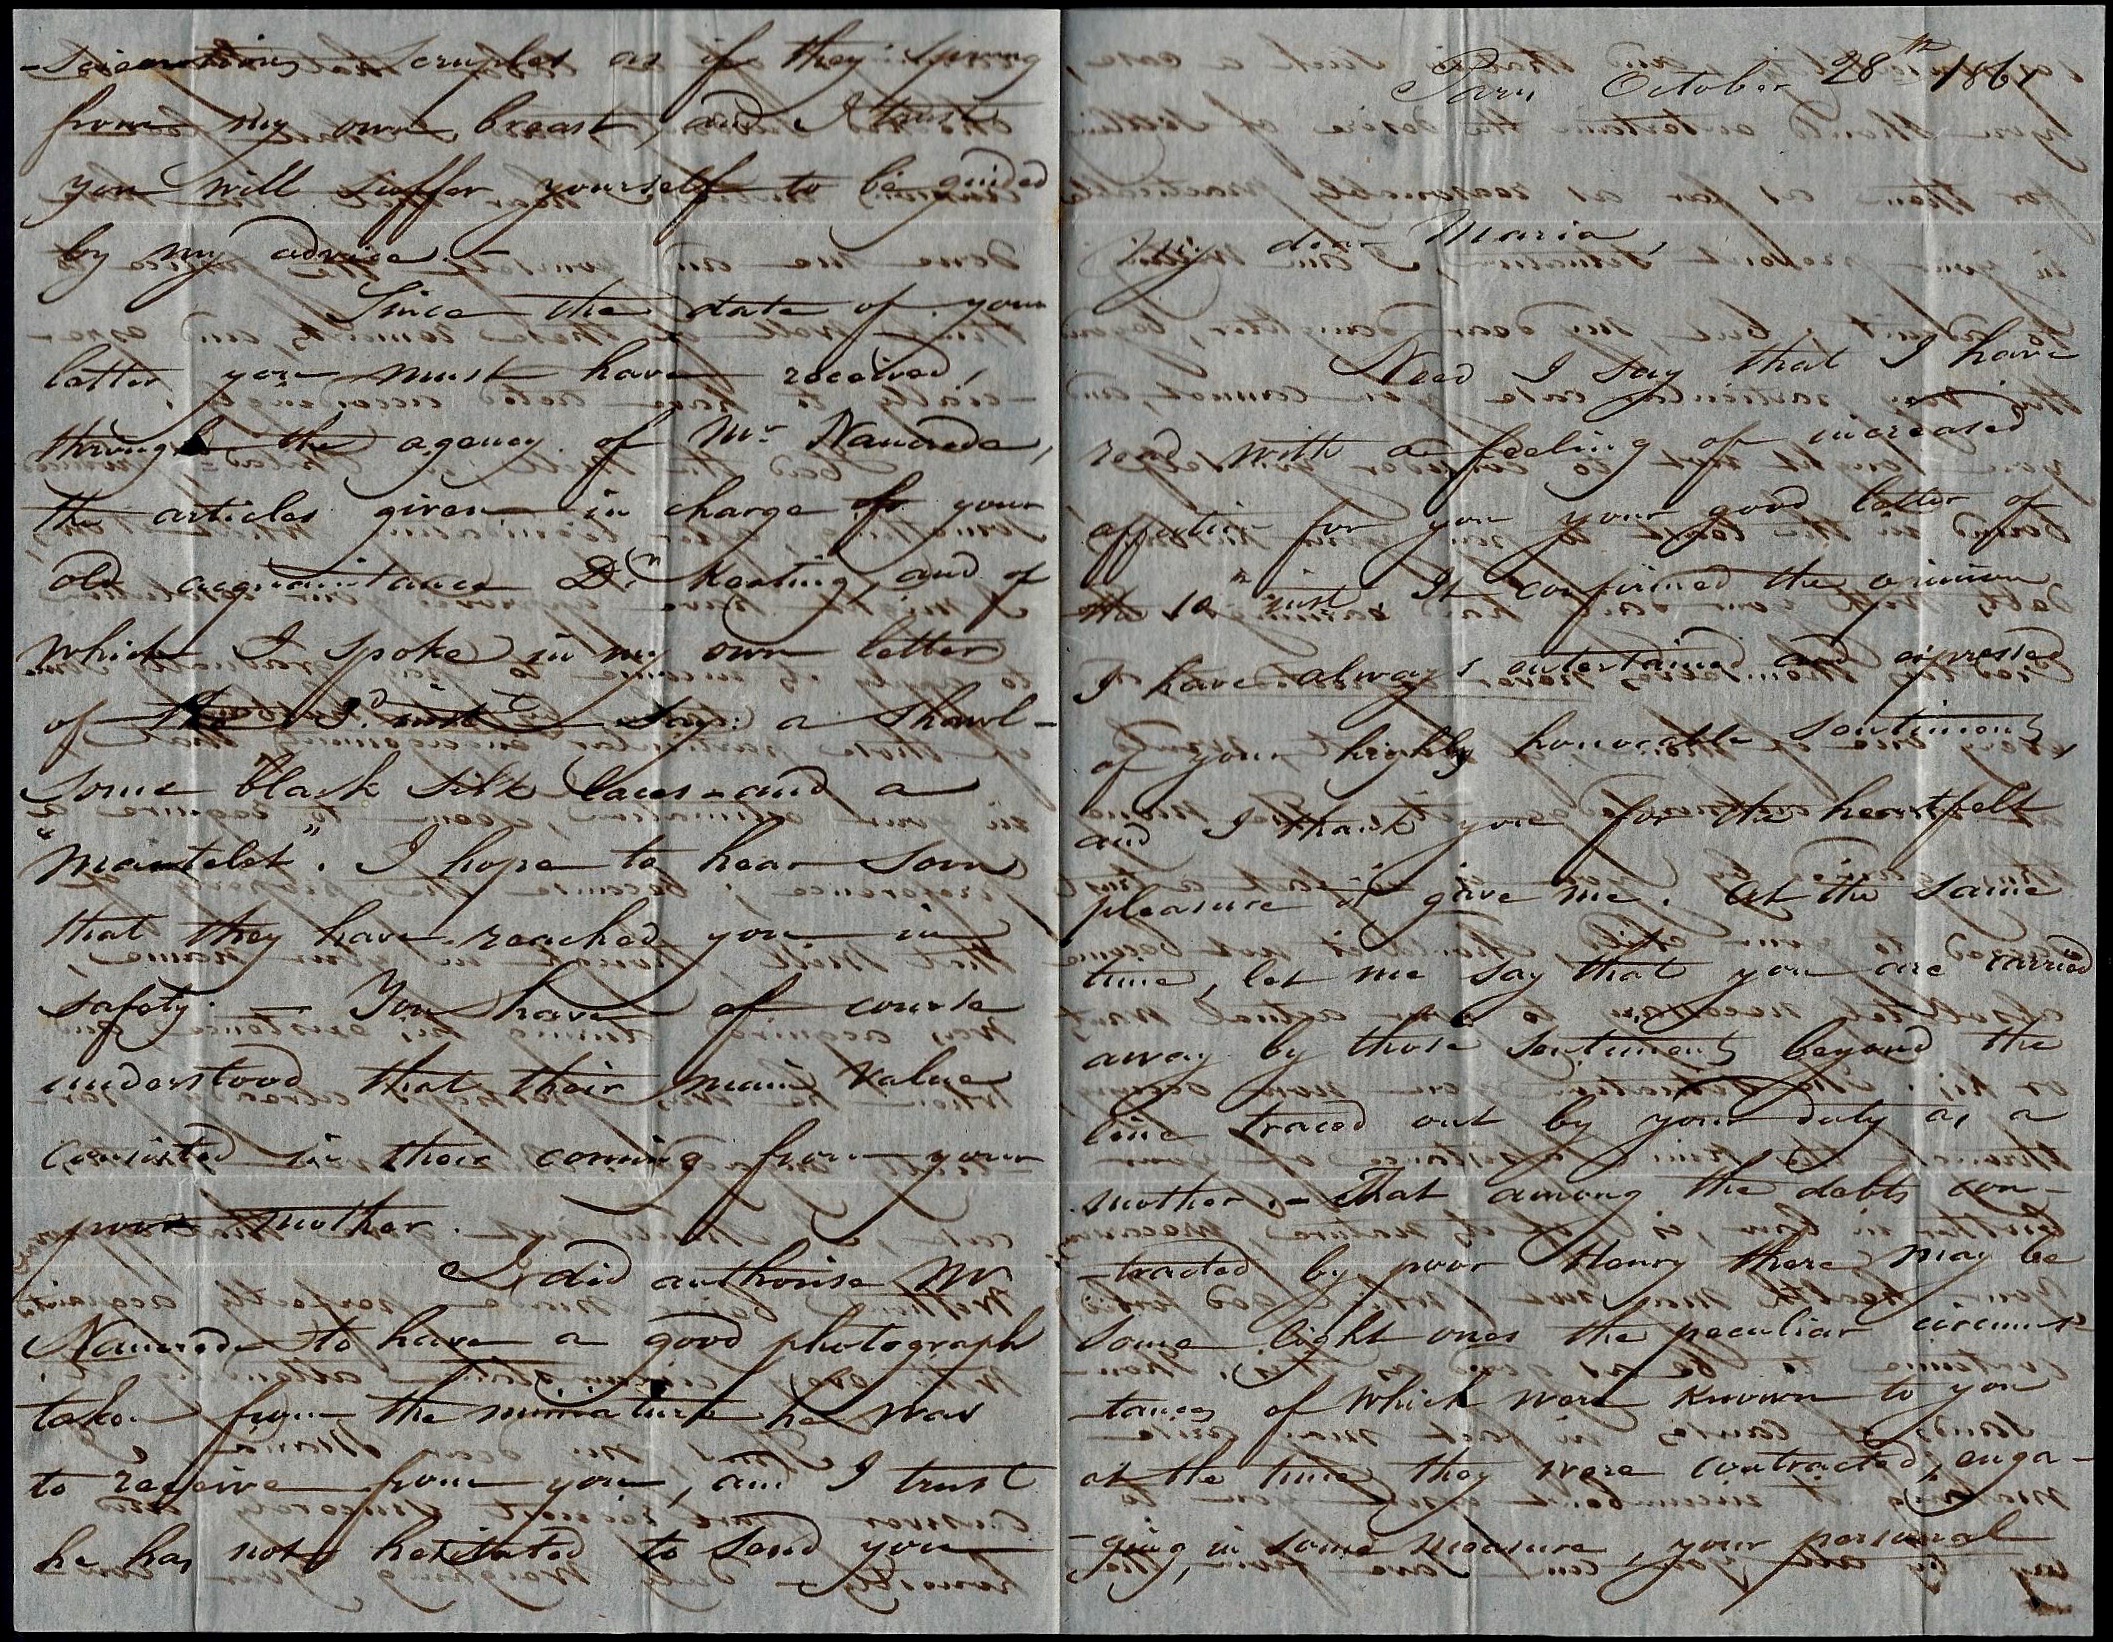 Paris October 28th 1861
My dear Maria,
Need I say that I have
read with a feeling of increased
affection for you your good letter of
the 10th inst. It confirmed the opinion
I have always entertained and expressed
of your highly honorable sentiments,
and I thank you for the heartfelt
pleasure it gave me. At the same
time, let me say that you are carried
away by those sentiments beyond the
line traced out by your duty as a
mother. – That among the debts con-
-tracted by poor Henry there may be
some light ones the peculiar circums-
-tances of which were known to you
at the time they were contracted, enga-
-ging, in some measure, your personal
scruples as if they sprung
from my own breast, and I trust
you will suffer yourself to be guided
by my advice. –
Since the date of your
letter, you must have received,
through the agency of Mr Nancrede,
the articles given in charge of your
old acquaintance Dr. Keating, and of
which I spoke in my own letter
of the 3d inst – say: a shawl –
some black silk laces – and a
"mantelet". I hope to hear soon
that they have reached you in
safety. – You have of course
understood that their main value
consisted in their coming from your
poor mother.
I did authorise Mr
Nancrede to have a good photograph
taken from the miniature he was
to receive from you, and I trust
he has not hesitated to send you